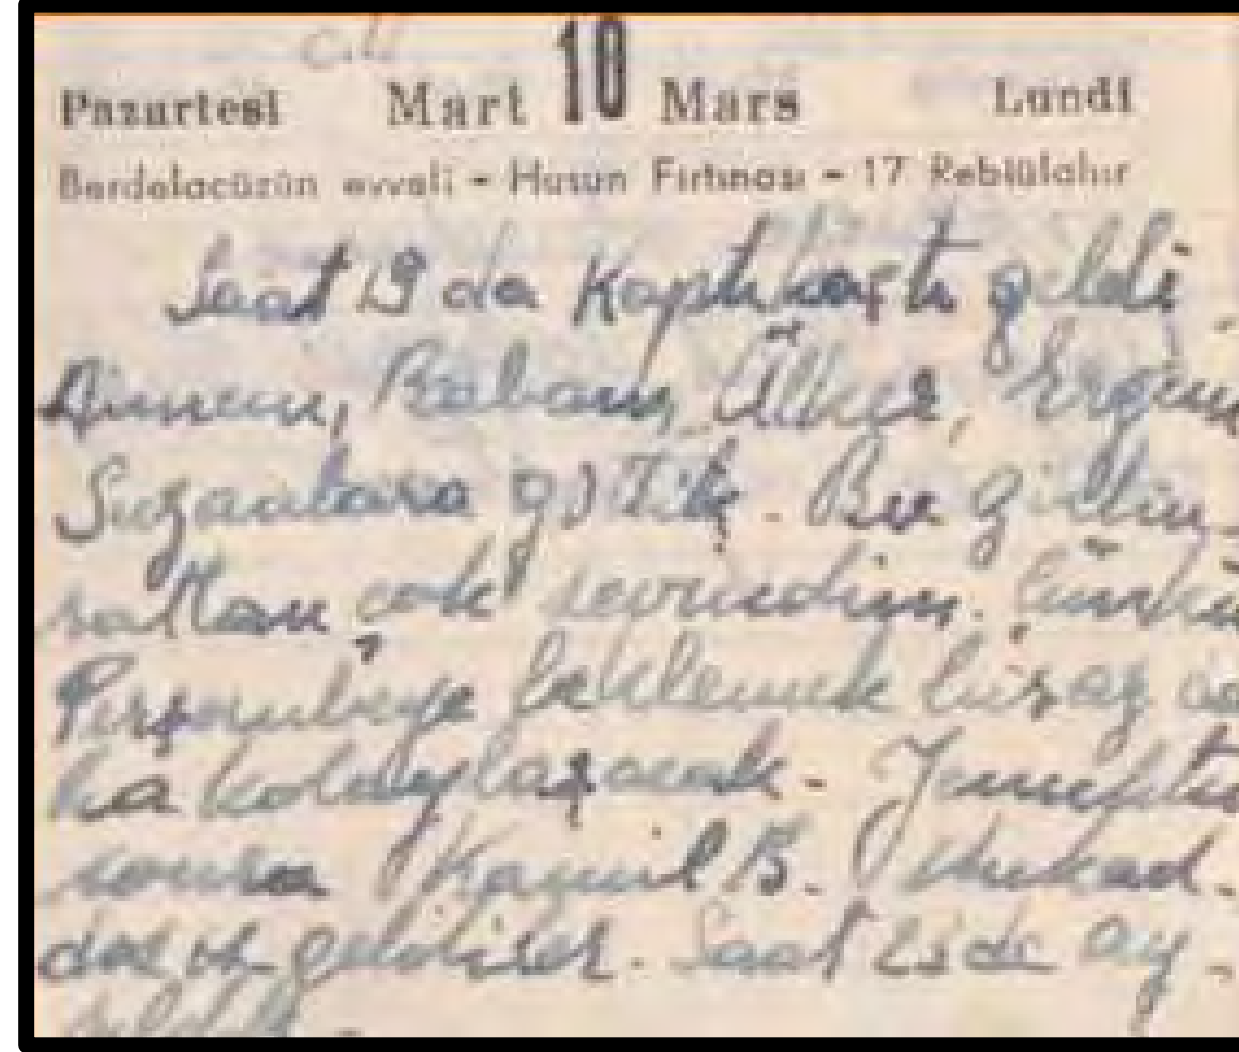 Pazartesi Mart 10 Mars Lundi
Berdelacüzün evveli - Husun Fırtınası - 17 Rebiülahır
Saat 19 da Kaptıkaçtı geldi.
Annem, Babam, Ülker, Ergun
Suzanlara gittik. Bu
çok sevindim. Çünkü
Perşembeye beklemek biraz da
ha kolaylaşacak. Yemekten
sonra Kamil B. Mukad-
der H. geldiler. Saat 23 de ay-